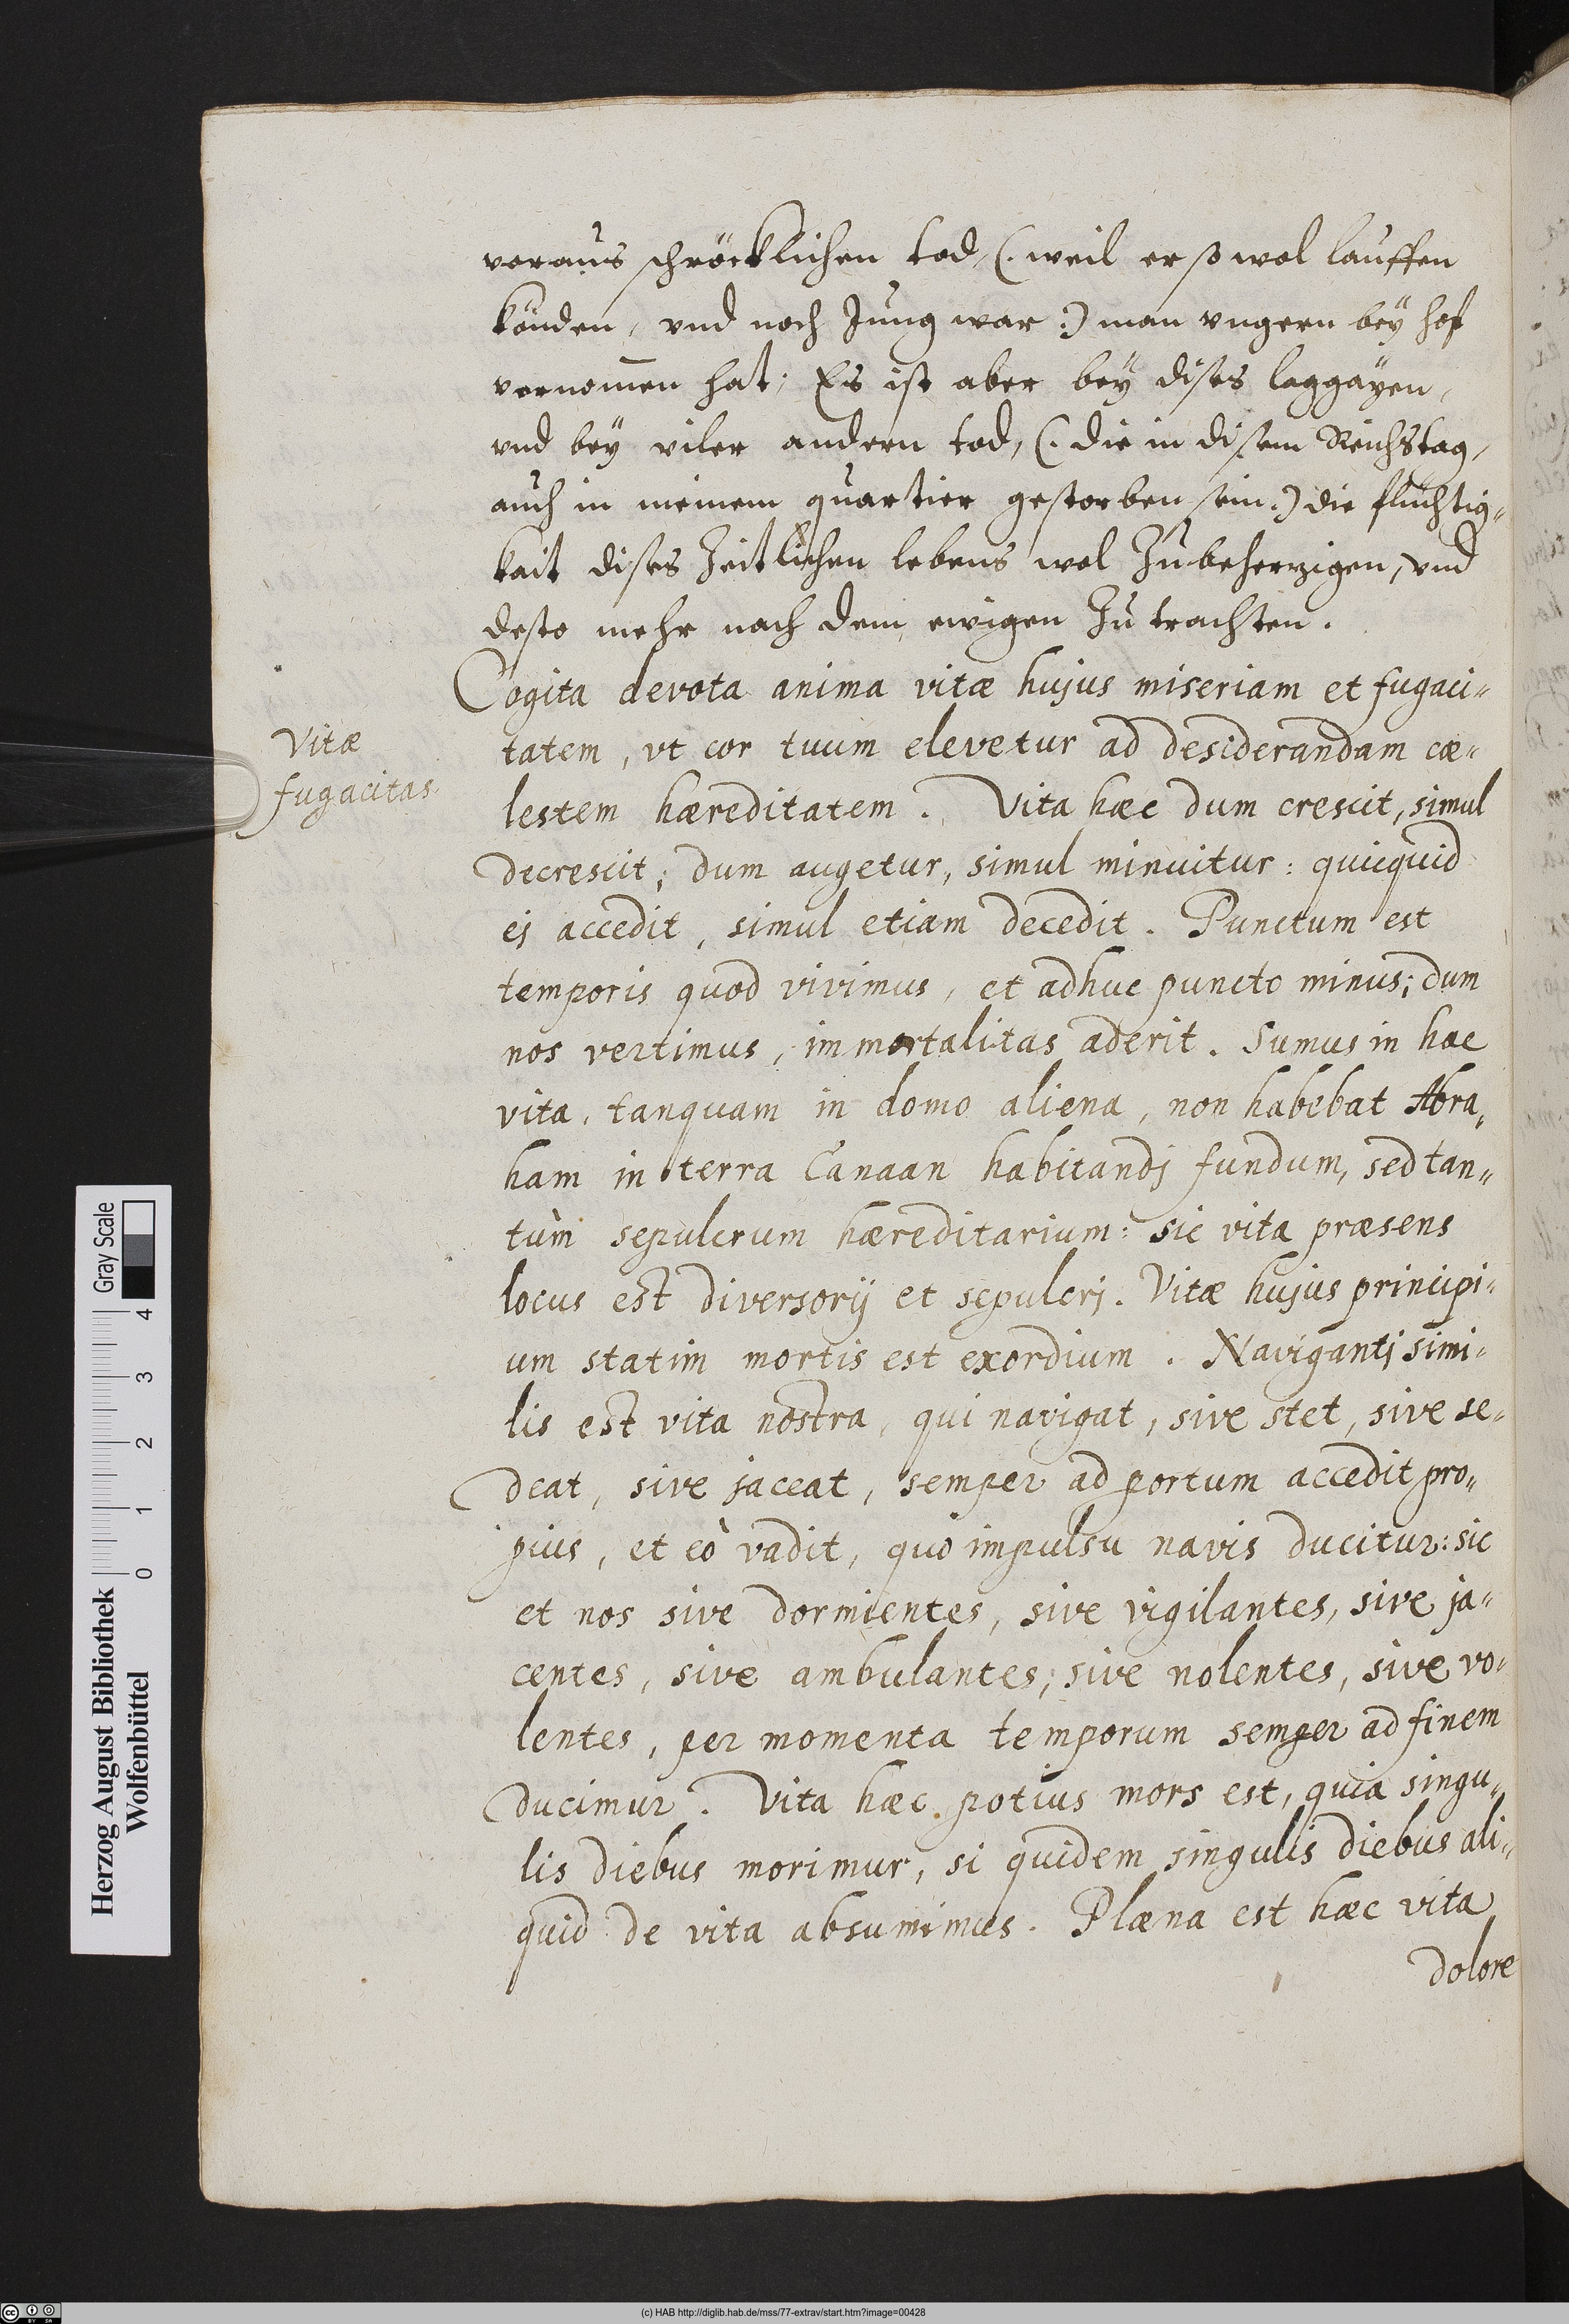 voraus schröcklichen tod, (. weil er so wol lauffen
könden, vnd noch Jung war :) man vngern bey hof
vernom̄en hat; Es ist aber bey dises laggäyen,
vnd bey viler andern tod, (. die in disem Reichstag,
auch in meinem quartier gestorben sein.) die fluchtig„
kait dises Zeitlichen lebens wol Zubeherzigen, vnd
desto mehr nach dem ewigen Zu trachten.
Cogita devota anima vitæ hujus miseriam et fugaci„
Vitæ
fugacitas.
tatem, vt cor tuum elevetur ad desiderandam cæ„
lestem hæreditatem. Vita hæc dum crescit, simul
decrescit; dum augetur, simul minuitur: quicquid
ej accedit, simul etiam decedit. Punctum est
temporis quod vivimus, et adhuc puncto minus; dum
nos vertimus, immortalitas aderit. Sumus in hac
vita, tanquam in domo aliena, non habebat Abra„
ham in terra Canaan habitandj fundum, sed tan„
tùm sepulcrum hæreditarium: sic vita præsens
locus est diversorij et sepulcrj. Vitæ hujus principi„
um statim mortis est exordium. Navigantj simi„
lis est vita nostra, qui navigat, sive stet, sive se„
deat, sive jaceat, semper ad portum accedit pro„
pius, et eò vadit, quò impulsu navis ducitur: sic
et nos sive dormientes, sive vigilantes, sive ja„
centes, sive ambulantes; sive nolentes, sive vo„
lentes, per momenta temporum semper ad finem
ducimur. Vita hæc potius mors est, quia singu„
lis diebus morimur, si quidem singulis diebus ali„
quid de vita absumimus. Plæna est hæc vita
dolore
Herzog August Bibliothek
Wolfenbüttel
0 1 2 3 4
Gray Scale
(c) HAB http://diglib.hab.de/mss/77-extrav/start.htm?image=00428